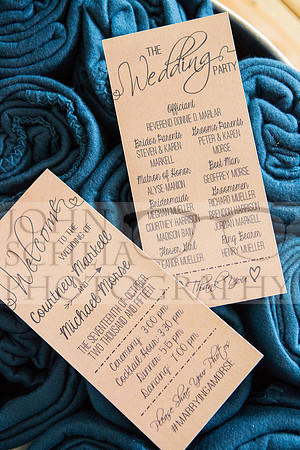 THE
Wedding
PARTY
Officiant
REVEREND DONNIE D. MARLAR
Brides Parents
STEVEN & KAREN
MARKELL
Grooms Parents
PETER & KAREN
MORSE
Matron of Honor
ALYSE MANION
Best Man
GEOFFREY MORSE
Bridesmaids
MEGHAN MUELLER
COURTNEY HARRISON
MADISON BAIN
Groomsmen
RICHARD MUELLER
BRENDAN HARRISON
JORDAN MARKELL
Flower Girl
TAYLOR MUELLER
Ring Bearer
HENRY MUELLER
Thank you
Welcome
TO THE WEDDING OF
Courtney Markell
and
Michael Morse
THE SEVENTEENTH OF OCTOBER
TWO THOUSAND AND FIFTEEN
Ceremony 3:00 pm
Cocktail Hour 3:30 pm
Dinner 5:15 pm
Dancing 7:00 pm
Please Share Your Photos
#MARRYINGAMORSE
JOHN
SOPHIA
PHOTOGRAPHY